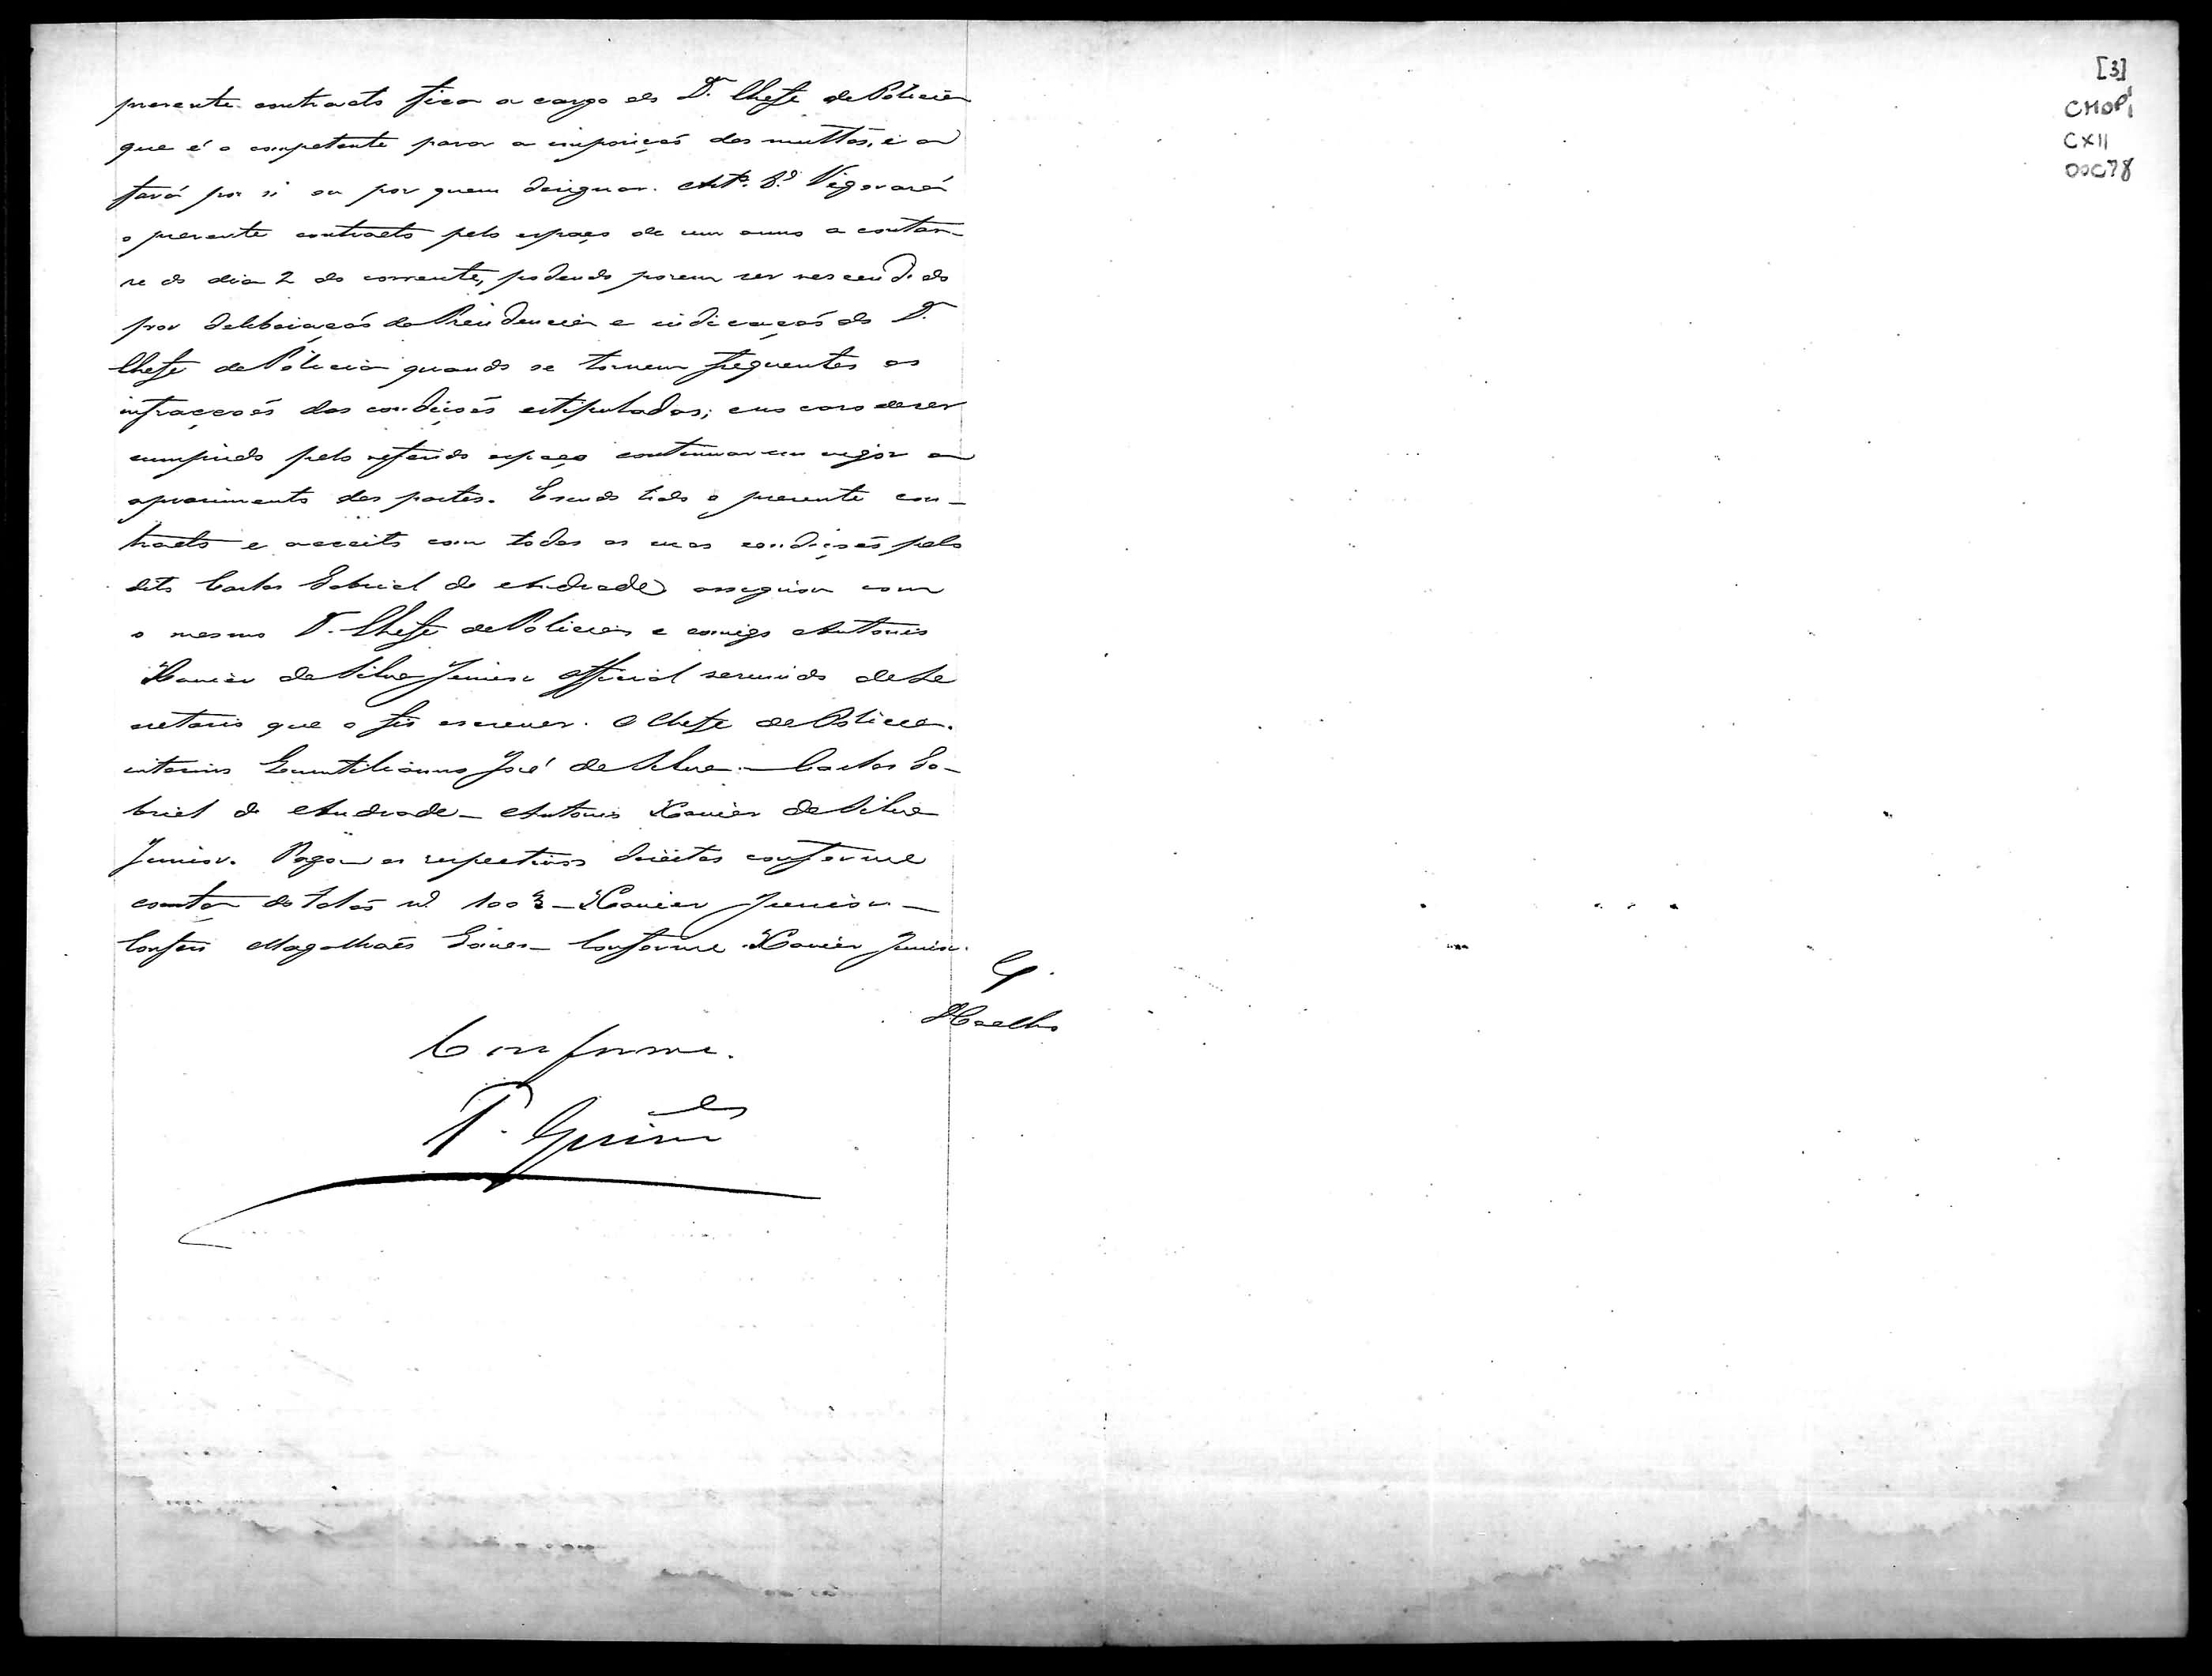 presente contracto fica a cargo do Dr. Chefe de Policia
que é o competente para a imposição das multas, e a
fará por si ou por quem designar. Artº. 8º Vigorará
o presente contracto pelo espaço de um anno a contar-
se do dia 2 do corrente, podendo porem ser rescendido
por deliberação da Presidencia e indicação do Dr.
Chefe de Policia quando se tornem frequentes as
infracções das condições estipuladas; e no caso de ser
cumprido pelo referido espaço continuar em vigor a
aprasimento das partes. E sendo lido o presente con-
tracto e acceito com todas as suas condições pelo
dito Carlos Gabriel de Andrade assignou com
o mesmo Dr. Chefe de Policia e comigo Antonio
Xavier da Silva Junior official servindo de Se
cretario que o fiz escrever. O Chefe de Policia
interino Quintiliano José da Silva - Carlos Ga-
briel de Andrade - Antonio Xavier da Silva
Junior. Pagou os respectivos direitos conforme
consta do talão nº 1003 - Xavier Junior -
Conferi Magalhães Gomes - Conforme Xavier Junior.
Coelho
Conforme.
[3]
CMOPi
CX11
DOC78